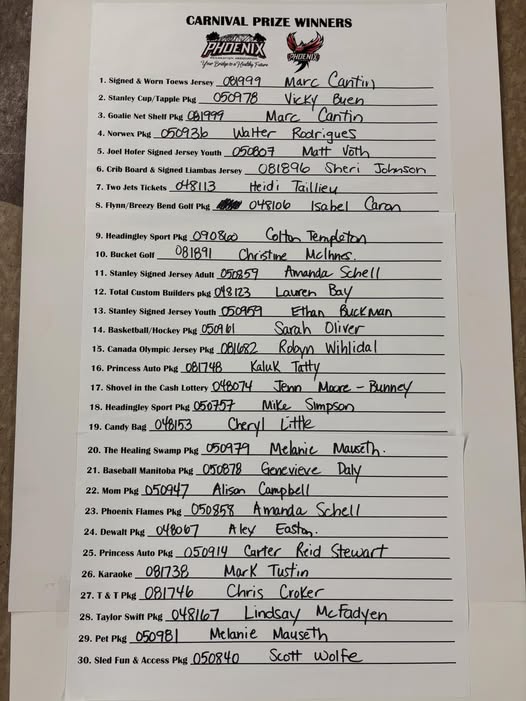 CARNIVAL PRIZE WINNERS
PHOENIX PHOENIX
Your Bridge to a Healthy Future
1. Signed & Worn Toews Jersey 081999 Marc Cantin
2. Stanley Cup/Tapple Pkg 050978 Vicky Buen
3. Goalie Net Shelf Pkg 081999 Marc Cantin
4. Norwex Pkg 050936 Walter Rodrigues
5. Joel Hofer Signed Jersey Youth 050807 Matt Voth
6. Crib Board & Signed Liambas Jersey 081896 Sheri Johnson
7. Two Jets Tickets 048113 Heidi Taillieu
8. Flynn/Breezy Bend Golf Pkg 048106 Isabel Caron
9. Headingley Sport Pkg 090860 Colton Templeton
10. Bucket Golf 081891 Christine McInnes.
11. Stanley Signed Jersey Adult 050859 Amanda Schell
12. Total Custom Builders pkg 048123 Lauren Bay
13. Stanley Signed Jersey Youth 050959 Ethan Buckman
14. Basketball/Hockey Pkg 050961 Sarah Oliver
15. Canada Olympic Jersey Pkg 081682 Robyn Wihlidal
16. Princess Auto Pkg 081748 Kaluk Tatty
17. Shovel in the Cash Lottery 048074 Jenn Moore - Bunney
18. Headingley Sport Pkg 050757 Mike Simpson
19. Candy Bag 048153 Cheryl Little
20. The Healing Swamp Pkg 050979 Melanie Mauseth.
21. Baseball Manitoba Pkg 050878 Genevieve Daly
22. Mom Pkg 050947 Alison Campbell
23. Phoenix Flames Pkg 050858 Amanda Schell
24. Dewalt Pkg 048067 Alex Easton.
25. Princess Auto Pkg 050914 Carter Reid Stewart
26. Karaoke 081738 Mark Tustin
27. T & T Pkg 081746 Chris Croker
28. Taylor Swift Pkg 048167 Lindsay McFadyen
29. Pet Pkg 050981 Melanie Mauseth
30. Sled Fun & Access Pkg 050840 Scott Wolfe